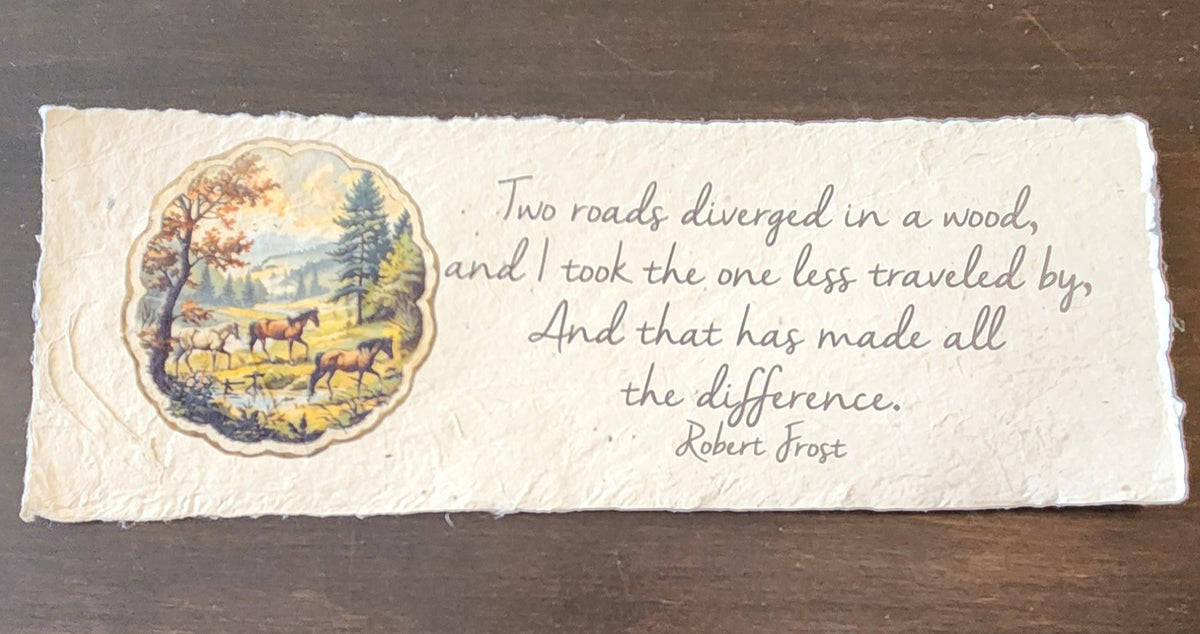 Two roads diverged in a wood,
and I took the one less traveled by,
And that has made all
the difference.
Robert Frost